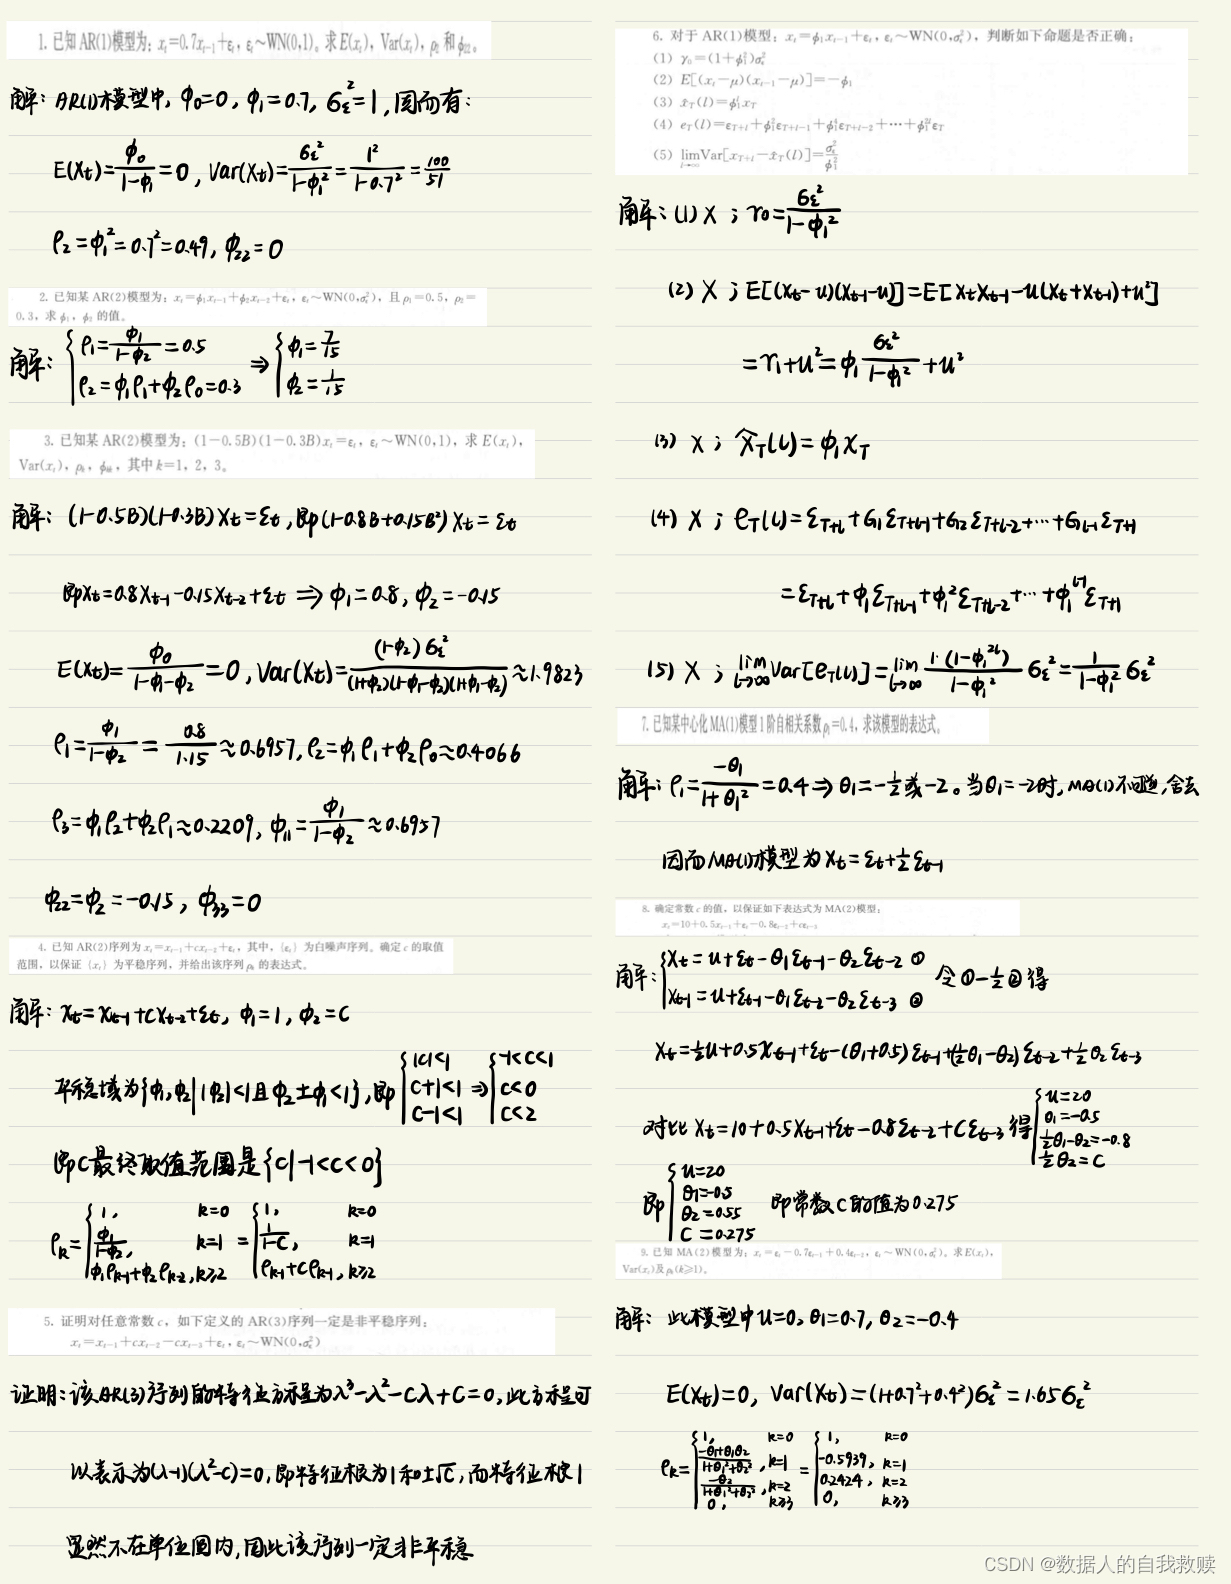 1. 已知AR(1)模型为: xₜ=0.7xₜ₋₁+εₜ, εₜ~WN(0,1)。求E(xₜ), Var(xₜ), ρ₂和φ₂₂。
解: AR(1)模型中, φ₀=0, φ₁=0.7, σε²=1, 因而有:
E(Xt)=φ₀/(1-φ₁)=0, Var(Xt)=σε²/(1-φ₁²)=1²/(1-0.7²)=100/51
ρ₂=φ₁²=0.7²=0.49, φ₂₂=0
2. 已知某AR(2)模型为: xₜ=φ₁xₜ₋₁+φ₂xₜ₋₂+εₜ, εₜ~WN(0,σε²), 且ρ₁=0.5, ρ₂=
0.3, 求φ₁, φ₂的值。
解: { ρ₁=φ₁/(1-φ₂)=0.5 ⇒ { φ₁=7/15
ρ₂=φ₁ρ₁+φ₂ρ₀=0.3 φ₂=1/15
3. 已知某AR(2)模型为: (1-0.5B)(1-0.3B)xₜ=εₜ, εₜ~WN(0,1), 求E(xₜ),
Var(xₜ), ρₖ, φₖₖ, 其中k=1, 2, 3。
解: (1-0.5B)(1-0.3B)Xt=εt, 即(1-0.8B+0.15B²)Xt=εt
即Xt=0.8Xt-1-0.15Xt-2+εt ⇒ φ₁=0.8, φ₂=-0.15
E(Xt)=φ₀/(1-φ₁-φ₂)=0, Var(Xt)=(1-φ₂)σε²/((1+φ₂)(1-φ₁-φ₂)(1+φ₁-φ₂))≈1.9823
ρ₁=φ₁/(1-φ₂)=0.8/1.15≈0.6957, ρ₂=φ₁ρ₁+φ₂ρ₀≈0.4066
ρ₃=φ₁ρ₂+φ₂ρ₁≈0.2209, φ₁₁=φ₁/(1-φ₂)≈0.6957
φ₂₂=φ₂=-0.15, φ₃₃=0
4. 已知AR(2)序列为xₜ=xₜ₋₁+cxₜ₋₂+εₜ, 其中, {εₜ}为白噪声序列。确定c的取值
范围, 以保证{xₜ}为平稳序列, 并给出该序列ρₖ的表达式。
解: Xt=Xt-1+CXt-2+εt, φ₁=1, φ₂=C
平稳域为{φ₁,φ₂| |φ₂|<1且φ₂±φ₁<1}, 即 { |C|<1 C+1<1 C-1<1 ⇒ { -1<C<1 C<0 C<2
即C最终取值范围是{C|-1<C<0}
ρk= { 1, k=0 = { 1, k=0
φ₁/(1-φ₂), k=1 1/(1-C), k=1
φ₁ρk-1+φ₂ρk-2, k≥2 ρk-1+Cρk-1, k≥2
5. 证明对任意常数c, 如下定义的AR(3)序列一定是非平稳序列:
xₜ=xₜ₋₁+cxₜ₋₂-cxₜ₋₃+εₜ, εₜ~WN(0,σε²)
证明: 该AR(3)序列的特征方程为λ³-λ²-Cλ+C=0, 此方程可
以表示为(λ-1)(λ²-C)=0, 即特征根为1和±√C, 而特征根1
显然不在单位圆内, 因此该序列一定非平稳
6. 对于AR(1)模型: xₜ=φ₁xₜ₋₁+εₜ, εₜ~WN(0,σε²), 判断如下命题是否正确:
(1) γ₀=(1+φ₁²)σε²
(2) E[(xₜ-μ)(xₜ₋₁-μ)]=-φ₁
(3) x̂T(l)=φ₁ˡxT
(4) eT(l)=εT+l+φ₁²εT+l-1+φ₁⁴εT+l-2+⋯+φ₁²ˡεT
(5) lim l→∞ Var[xT+l-x̂T(l)]=σε²/φ₁²
解: (1) X ; γ₀=σε²/(1-φ₁²)
(2) X ; E[(Xt-u)(Xt-1-u)]=E[XtXt-1-u(Xt+Xt-1)+u²]
=γ₁+u²=φ₁σε²/(1-φ₁²)+u²
(3) X ; X̂T(l)=φ₁XT
(4) X ; eT(l)=εT+l+G₁εT+l-1+G₂εT+l-2+⋯+Gl-1εT+1
=εT+l+φ₁εT+l-1+φ₁²εT+l-2+⋯+φ₁ˡ⁻¹εT+1
(5) X ; lim l→∞ Var[eT(l)]=lim l→∞ 1·(1-φ₁²ˡ)/(1-φ₁²) σε²=1/(1-φ₁²) σε²
7. 已知某中心化MA(1)模型1阶自相关系数ρ₁=0.4, 求该模型的表达式。
解: ρ₁=-θ₁/(1+θ₁²)=0.4 ⇒ θ₁=-1/2或-2。当θ₁=-2时, MA(1)不可逆, 舍去
因而MA(1)模型为Xt=εt+1/2εt-1
8. 确定常数c的值, 以保证如下表达式为MA(2)模型:
xₜ=10+0.5xₜ₋₁+εₜ-0.8εₜ₋₂+cεₜ₋₃
解: { Xt=u+εt-θ₁εt-1-θ₂εt-2 ① 令①-1/2②得
Xt-1=u+εt-1-θ₁εt-2-θ₂εt-3 ②
Xt=1/2u+0.5Xt-1+εt-(θ₁+0.5)εt-1+(1/2θ₁-θ₂)εt-2+1/2θ₂εt-3
对比Xt=10+0.5Xt-1+εt-0.8εt-2+Cεt-3得 { u=20 θ₁=-0.5 1/2θ₁-θ₂=-0.8 1/2θ₂=C
即 { u=20 θ₁=-0.5 θ₂=0.55 C=0.275 即常数C的值为0.275
9. 已知MA(2)模型为: xₜ=εₜ-0.7εₜ₋₁+0.4εₜ₋₂, εₜ~WN(0,σε²)。求E(xₜ),
Var(xₜ)及ρₖ(k≥1)。
解: 此模型中u=0, θ₁=0.7, θ₂=-0.4
E(Xt)=0, Var(Xt)=(1+0.7²+0.4²)σε²=1.65σε²
ρk= { 1, k=0 = { 1, k=0
(-θ₁+θ₁θ₂)/(1+θ₁²+θ₂²), k=1 -0.5939, k=1
-θ₂/(1+θ₁²+θ₂²), k=2 0.2424, k=2
0, k≥3 0, k≥3
CSDN @数据人的自我救赎